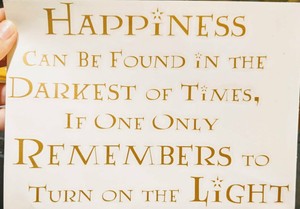 HAPPINESS
CAN BE FOUND IN THE
DARKEST OF TIMES,
IF ONE ONLY
REMEMBERS TO
TURN ON THE LIGHT